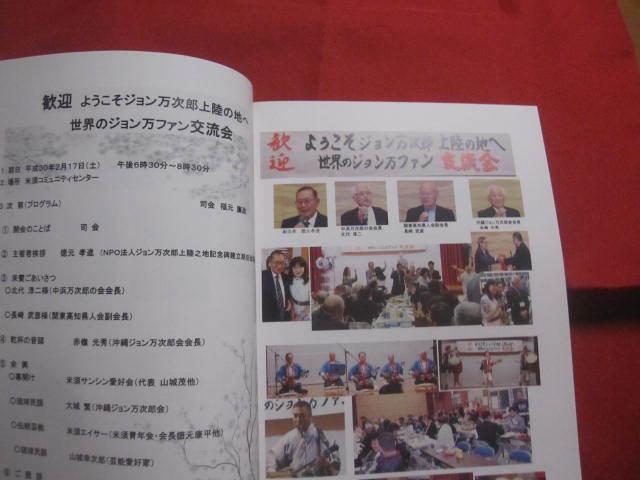 歓迎 ようこそジョン万次郎上陸の地へ
世界のジョン万ファン 交流会
1. 期日 平成30年2月17日(土) 午後6時30分～8時30分
2. 場所 米須コミュニティセンター
3 次 第(プログラム)
司会 福元 廣次
① 開会のことば 司 会
② 主催者挨拶 徳元 孝進 (NPO法人ジョン万次郎上陸之地記念碑建立期成会
③ 来賓ごあいさつ
○北代 淳二様(中浜万次郎の会会長)
○長崎 武彦様(関東高知県人会副会長)
④ 乾杯の音頭 赤嶺 光秀(沖縄ジョン万次郎会会長)
⑤ 余 興
○幕開け 米須サンシン愛好会(代表 山城茂他)
○琉球民謡 大城 繁(沖縄ジョン万次郎会)
○伝統芸能 米須エイサー(米須青年会・会長徳元康平他)
○琉球民謡 山城幸次郎(芸能愛好家)
歓迎 ようこそジョン万次郎上陸の地へ
世界のジョン万ファン 交流会
中浜万次郎の会会長
北代 淳二
関東高知県人会副会長
長崎 武彦
沖縄ジョン万次郎会会長